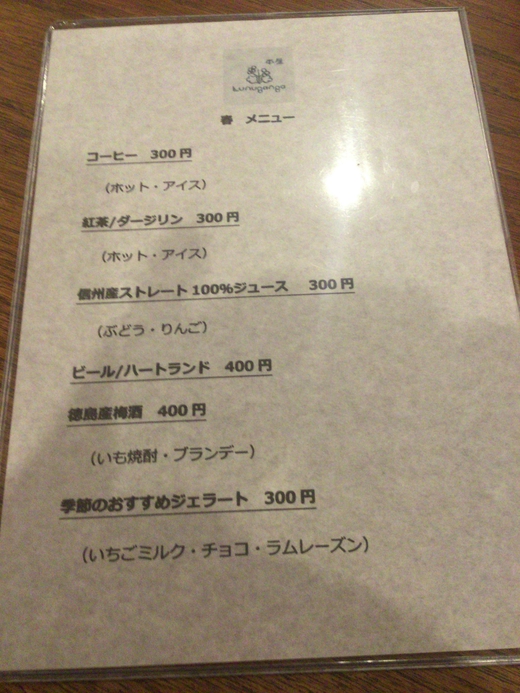 春 メニュー
コーヒー 300円
（ホット・アイス）
紅茶/ダージリン 300円
（ホット・アイス）
信州産ストレート100%ジュース 300円
（ぶどう・りんご）
ビール/ハートランド 400円
徳島産梅酒 400円
（いも焼酎・ブランデー）
季節のおすすめジェラート 300円
（いちごミルク・チョコ・ラムレーズン）